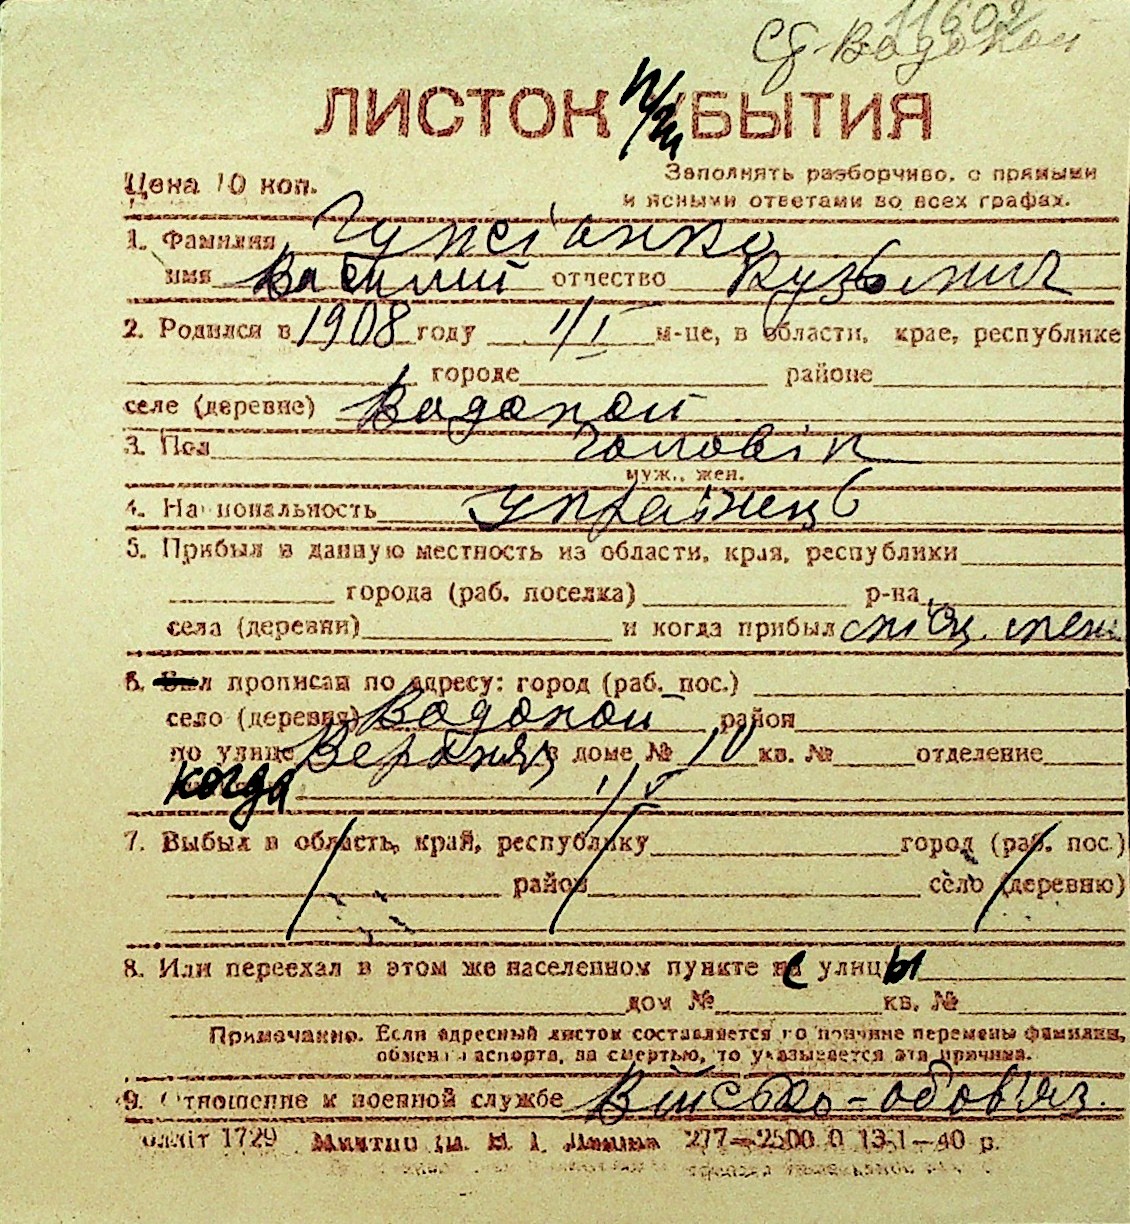 11602
сд-Водопой
ЛИСТОК ПРИБЫТИЯ
Цена 10 коп.
Заполнять разборчиво, с прямыми
и ясными ответами во всех графах.
1. Фамилия
имя Василий отчество Кузьмич
2. Родился в 1908 году 1/I м-це, в области, крае, республике
городе районе
селе (деревне) Водопой
3. Пол Чоловік
муж., жен.
4. Национальность Українець
5. Прибыл в данную местность из области, края, республики
города (раб. поселка) р-на
села (деревни) и когда прибыл місц. меш.
6. прописан по адресу: город (раб. пос.)
село (деревня) Водопой район
по улице в доме № 10 кв. № отделение
когда 1/V
7. Выбыл в область, край, республику город (раб. пос.)
район село (деревню)
8. Или переехал в этом же населенном пункте с улицы
дом № кв. №
Примечание. Если адресный листок составляется по причине перемены фамилии,
обмена паспорта, за смертью, то указывается эта причина.
9. Отношение к военной службе Військо-обов'яз.
1729 277—2500 0 13-1—40 р.